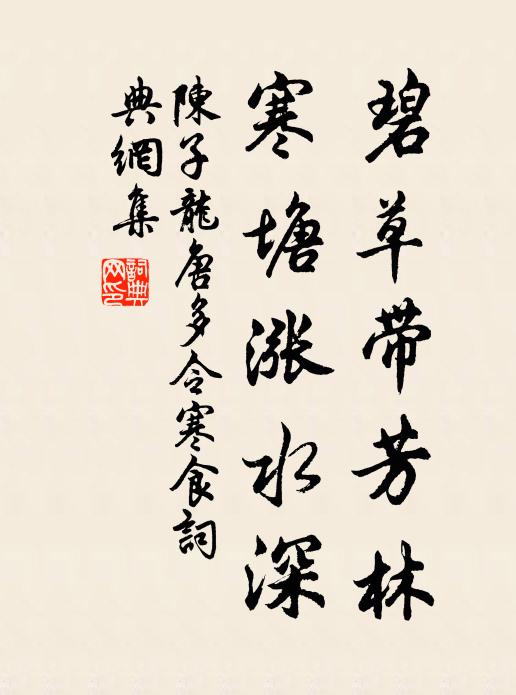 碧草带芳林
寒塘漲水深
陳子龍唐多令寒食詞
典網集
詞典
网印